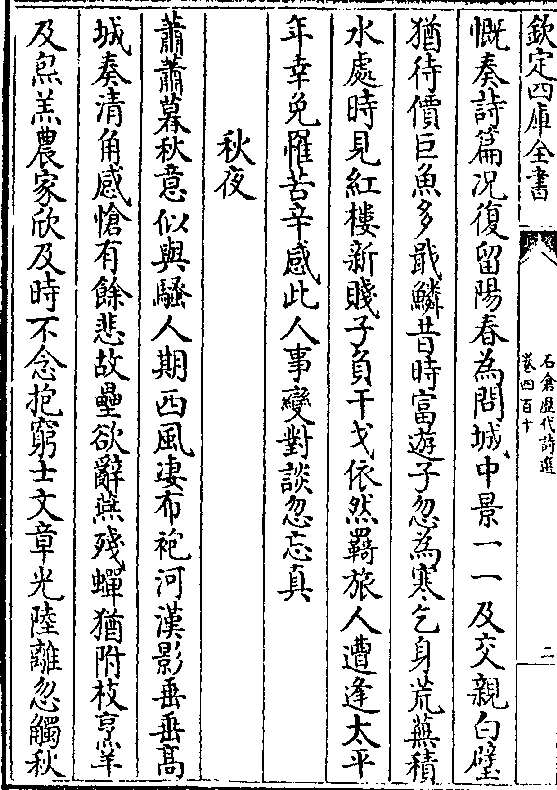 欽定四庫全書
石倉歷代詩選
卷四百十
二
慨奏詩篇况復留陽春為問城中景一一及交親白璧
猶待價巨魚多戢鱗昔時富遊子忽為寒乞身荒蕪積
水處時見紅樓新賤子負干戈依然羇旅人遭逢太平
年幸免罹苦辛感此人事變對談忽忘真
秋夜
蕭蕭暮秋意似與騷人期西風凄布袍河漢影垂垂髙
城奏清角感愴有餘悲故壘欲辭燕殘蟬猶附枝烹羊
及炰羔農家欣及時不念抱窮士文章光陸離忽觸秋